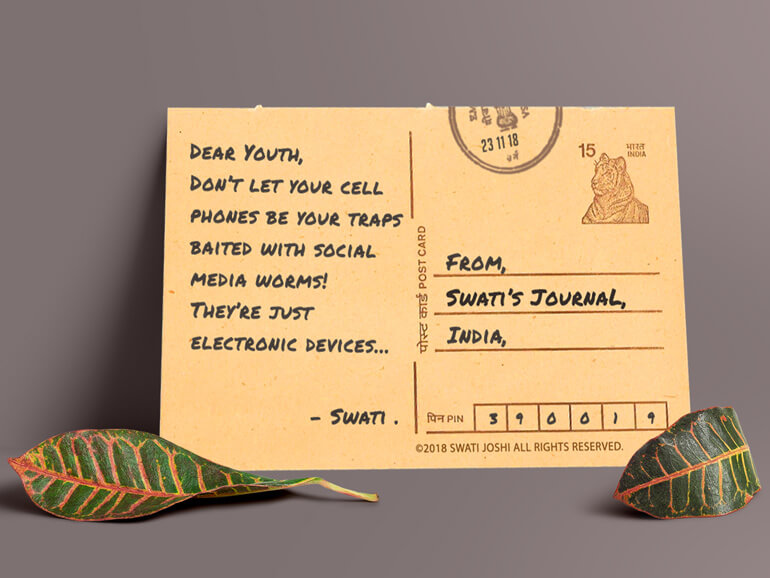 DEAR YOUTH,
DON'T LET YOUR CELL
PHONES BE YOUR TRAPS
BAITED WITH SOCIAL
MEDIA WORMS!
THEY'RE JUST
ELECTRONIC DEVICES...
- SWATI .
23 11 18
15 भारत
INDIA
पोस्ट कार्ड POST CARD
FROM,
SWATI'S JOURNAL,
INDIA,
पिन PIN 3 9 0 0 1 9
©2018 SWATI JOSHI ALL RIGHTS RESERVED.